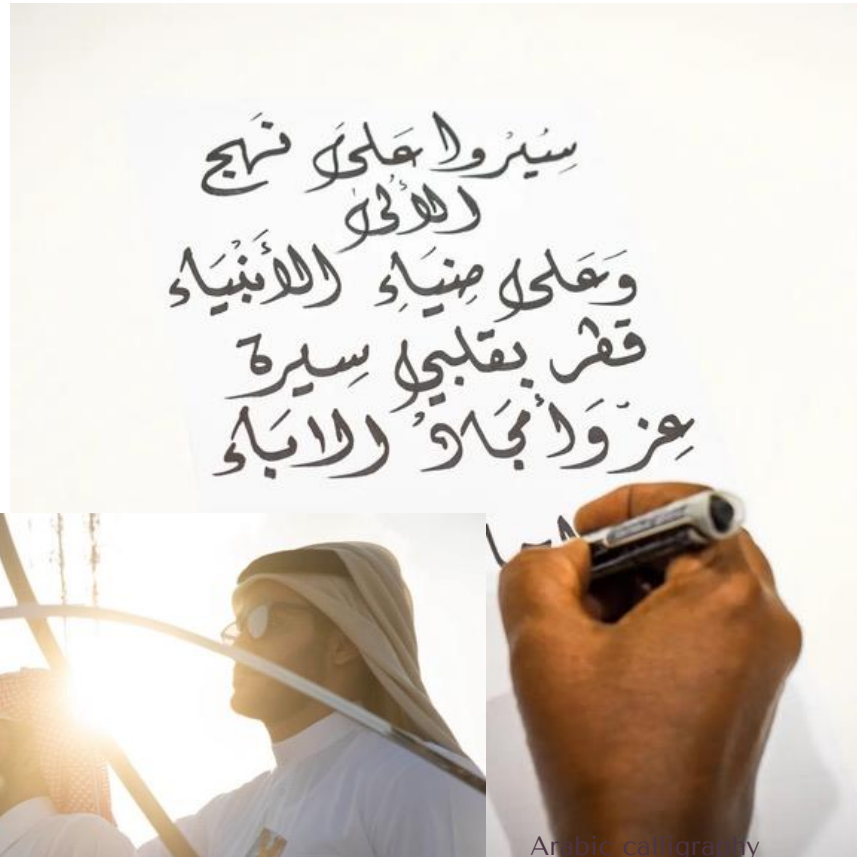 سِيْرُوا عَلَىَ نَهج
الأُلىَ
وَعَلى ضِيَاءِ الأَنْبِيَاء
قطر بقلبي سِيرة
عِزّ وَأمجَادُ الابَاء
Arabic calligraphy